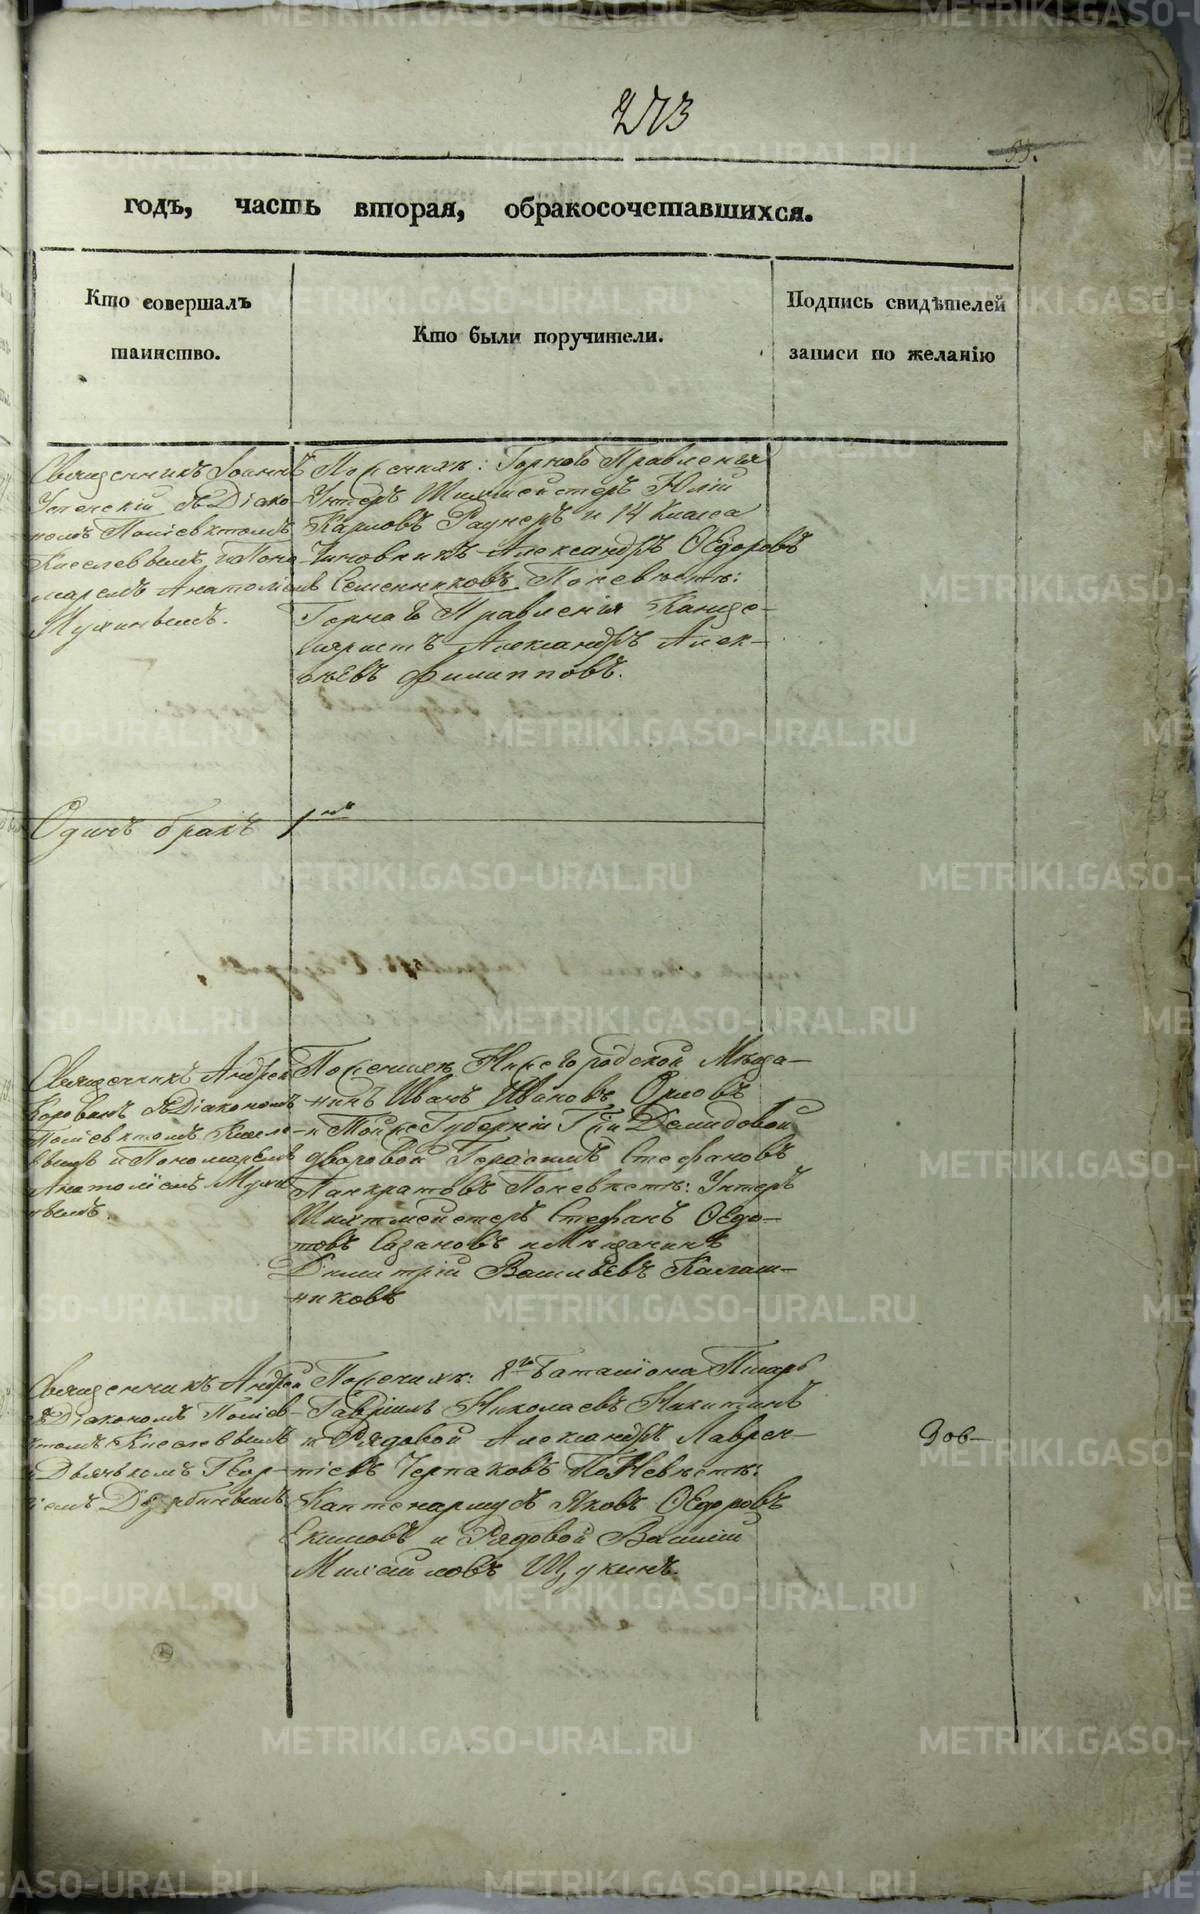 273
годъ, часть вторая, обракосочетавшихся.
Кто совершалъ
таинство.
Кто были поручители.
Подпись свидѣтелей
записи по желанію
Священникъ Іоаннъ
Успенскій съ Діако
номъ Поліевктомъ
Киселевымъ и Поно
маремъ Анатоліемъ
Мухинымъ.
По женихѣ: Горнаго Правленія
Унтеръ Шихтмейстеръ Юлій
Карловъ Раунеръ и 14 Класса
Чиновникъ Александръ Ѳедоровъ
Семенниковъ По невѣстѣ:
Горнаго Правленія Канце-
ляристъ Александръ Алек-
сѣевъ Филипповъ.
Одинъ бракъ 1
Священникъ Андрей
Коровинъ съ Діакономъ
Поліевктомъ Кисел
вымъ и Пономаремъ
Анатоліемъ Мухи
нымъ.
По женихѣ Нижегородской Мѣща-
нинъ Иванъ Ивановъ Орловъ
и Тойже Губерніи Гжи Демидовой
дворовой Герасимъ Стефановъ
Панкратовъ По невѣстѣ: Унтеръ
Шихтмейстеръ Стефанъ Ѳедо-
товъ Сазановъ и Мѣщанинъ
Димитрій Васильевъ Калаш-
никовъ
Священникъ Андрей
съ Діакономъ Поліев-
ктомъ Киселевымъ
и Дьячкомъ Геор-
гіемъ
По женихѣ: 8го Баталіона Писарь
Гавріилъ Николаевъ Никитинъ
и Рядовой Александръ Лаврен-
тіевъ Черпаковъ По Невѣстѣ:
Каптенармусъ Яковъ Ѳедоровъ
Екимовъ и Рядовой Василій
Михайловъ Щукинъ.
METRIKI.GASO-URAL.RU